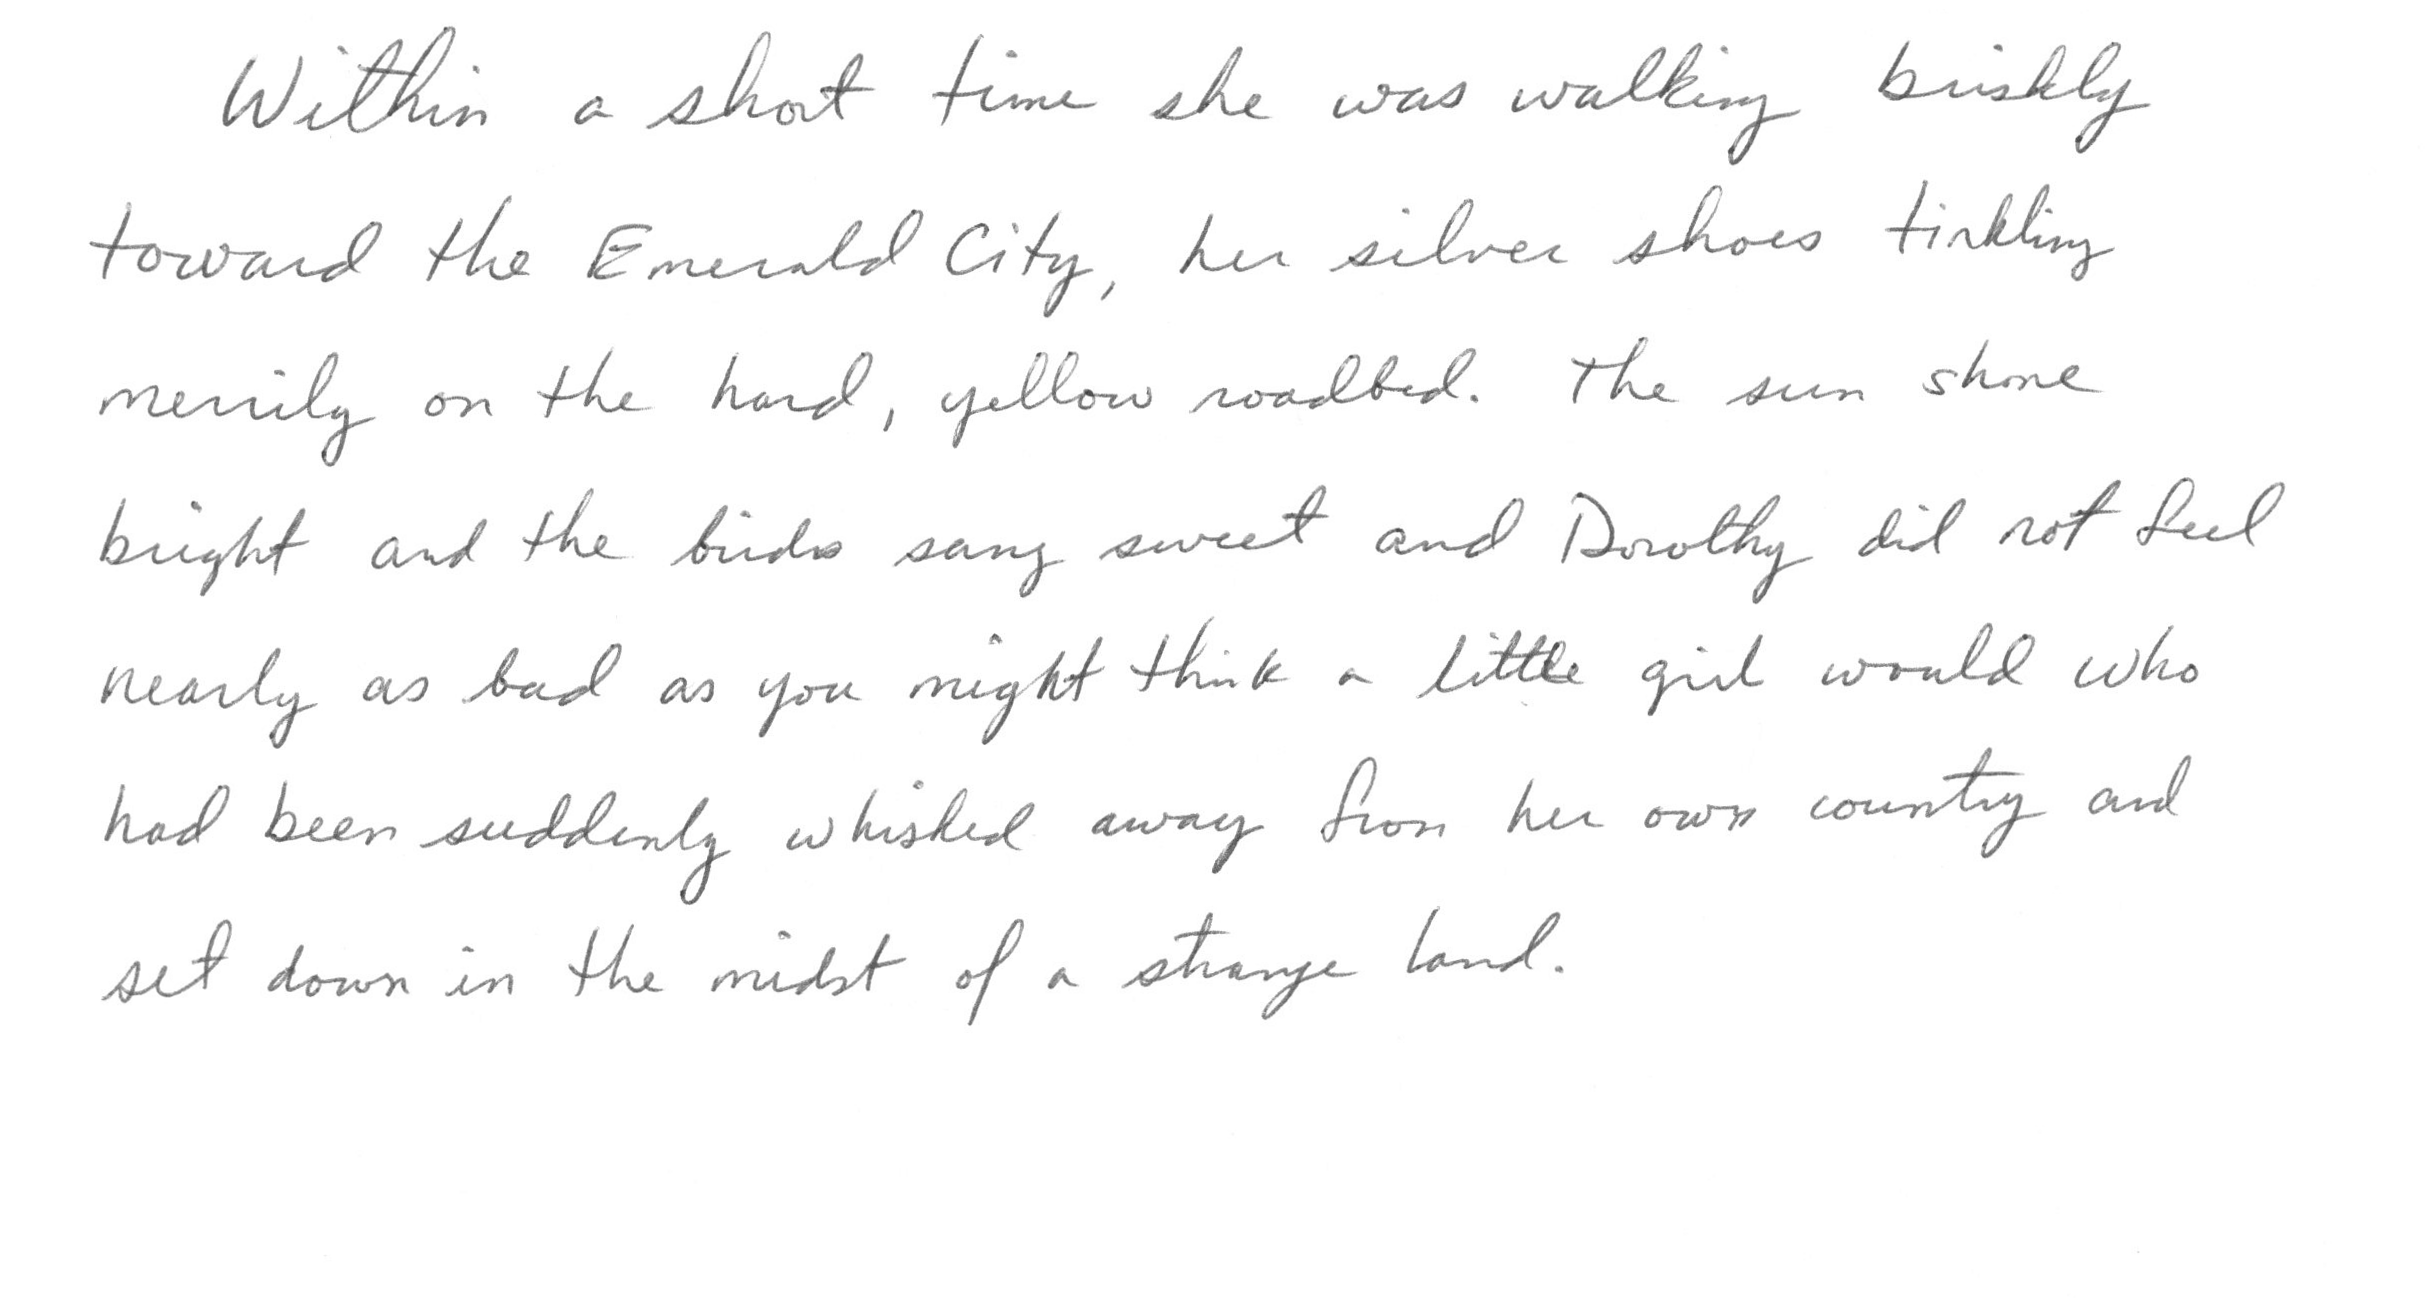 Within a short time she was walking briskly
toward the Emerald City, her silver shoes tinkling
merrily on the hard, yellow roadbed. The sun shone
bright and the birds sang sweet and Dorothy did not feel
nearly as bad as you might think a little girl would who
had been suddenly whisked away from her own country and
set down in the midst of a strange land.